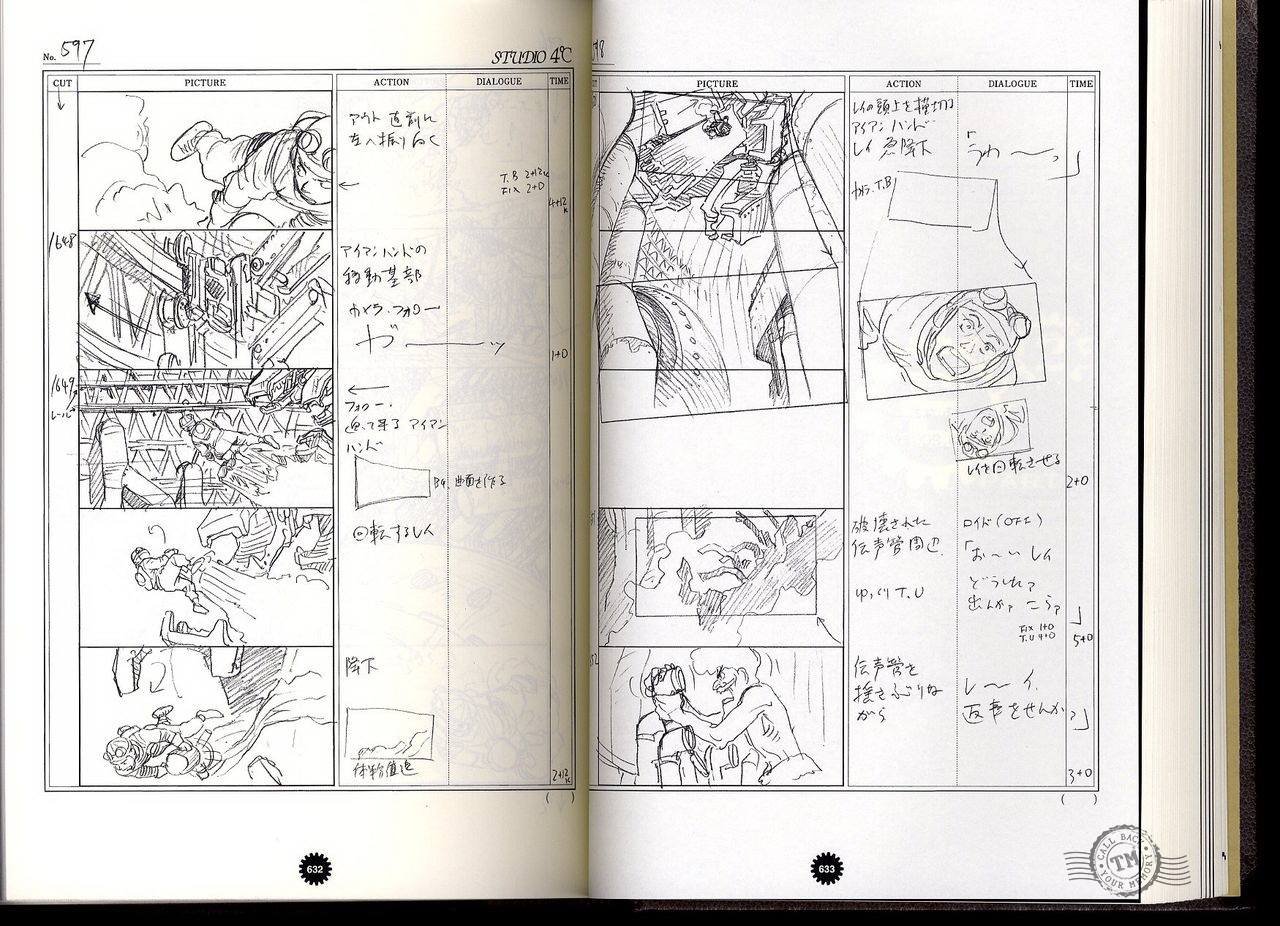 No. 597
STUDIO 4℃
CUT
PICTURE
ACTION
DIALOGUE
TIME
アウト 直前に
左へ振り向く
T.B 2+12K
FIX 2+0
4+12
K
1648
アイアンハンドの
移動基部
カメラ・フォロー
ガ――ッ
1+0
1649
レール
フォロー・
迫って来る アイアン
ハンド
BG. 曲面を作る
回転するレイ
降下
2+12
K
( )
632
PICTURE
ACTION
DIALOGUE
TIME
レイの頭上を横切る
アイアンハンド
レイ 急降下
「うわ〜っ」
カメラ.T.B
レイを回転させる
2+0
破壊された
伝声管周辺
ゆっくりT.U
ロイド(OFF)
「お〜い レイ
どうした?
出んか? こら?」
FIX 1+0
T.U 4+0
5+0
伝声管を
揺さぶりな
がら
レ〜イ.
返事をせんか?」
3+0
( )
633
CALL BACK
TM
YOUR MEMORY